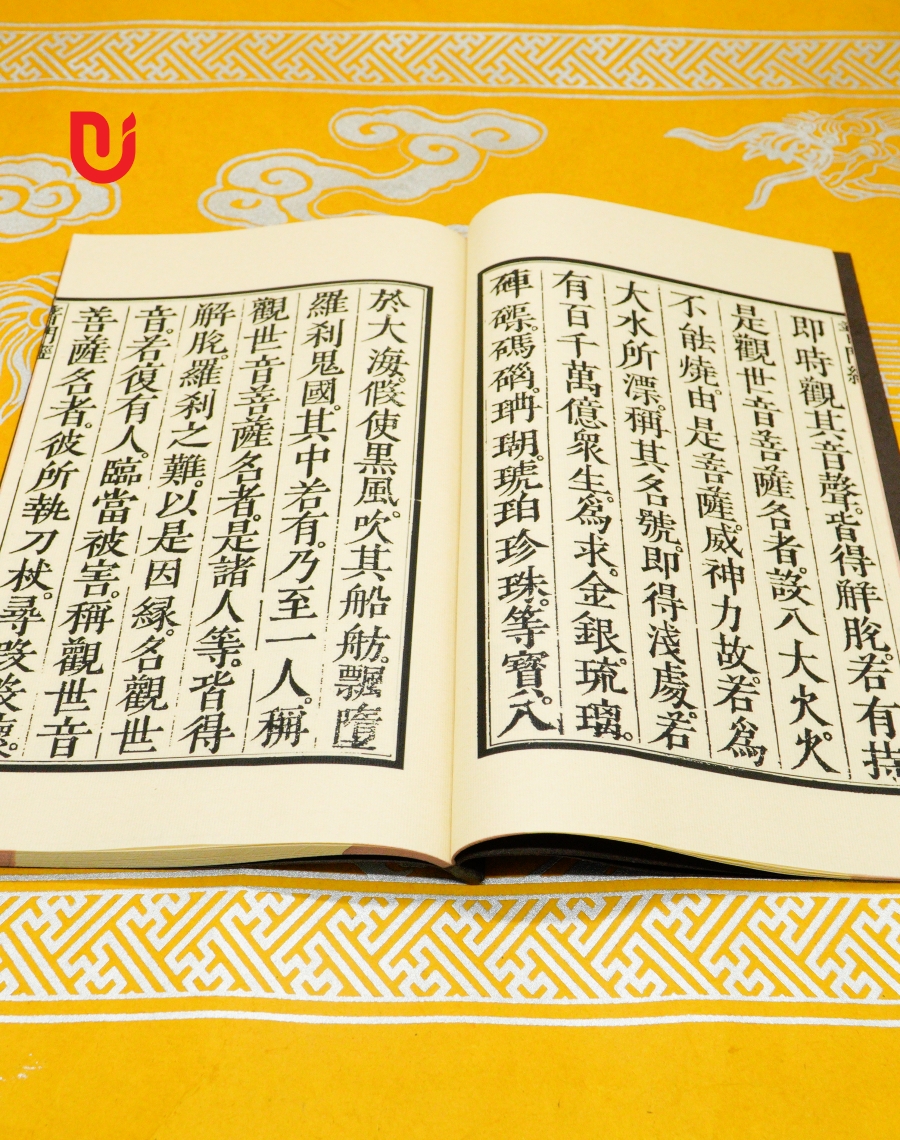 即時觀其音聲。皆得觧脫。若有持
是觀世音菩薩名者。設入大火。火
不能燒。由是菩薩。威神力故。若爲
大水所漂。稱其名號。即得淺處。若
有百千萬億衆生。爲求。金銀琉璃。
硨磲。碼碯。珊瑚。琥珀珍珠。等寶。入
於大海。假使黑風。吹其船舫。飄墮
羅刹鬼國。其中若有。乃至一人。稱
觀世音菩薩名者。是諸人等。皆得
解脫。羅刹之難。以是因緣。名觀世
音。若復有人。臨當被害。稱觀世音
菩薩名者。彼所執刀杖。尋段段壞。